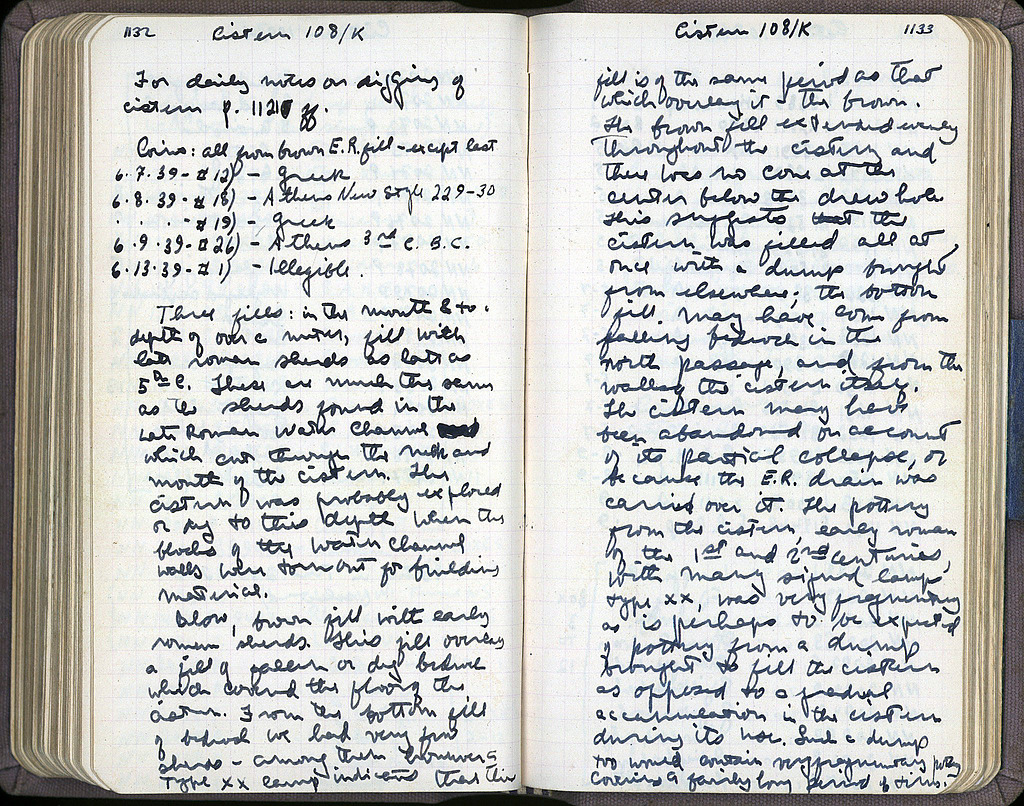 1132 Cistern 108/K
For daily notes on digging of
cistern p. 1121 ff
Coins: all from brown E.R. fill - except last
6.7.39 - # 12) - Greek
6.8.39 - # 18) - Athens New Style 229-30
. . . - # 19) - Greek
6.9.39 - # 26) - Athens 3rd C. B.C.
6.13.39 - # 1) - Illegible.
Three fills: in the mouth & to
depth of over a meter, fill with
late roman sherds as late as
5th C. These are much the same
as the sherds found in the
Late Roman Water Channel
which cut through the neck and
mouth of the cistern. The
cistern was probably explored
or dug to this depth when the
blocks of the water channel
walls were torn out for building
material.
Below, brown fill with early
roman sherds. This fill overlay
a fill of fallen or dug bedrock
which covered the floor of the
cistern. From this bottom fill
of bedrock we had very few
sherds - among them however a
Type XX lamp indicates that this
Cistern 108/K 1133
fill is of the same period as that
which overlay it - the brown.
The brown fill extended evenly
throughout the cistern and
there was no cone at the
center below the draw hole
This suggests that the
cistern was filled all at
once with a dump brought
from elsewhere; the bottom
fill may have come from
falling bedrock in the
north passage, and from the
walls of the cistern itself.
The cistern may have
been abandoned on account
of its partical collapse, or
because the E.R. drain was
carried over it. The pottery
from the cistern, early roman
of the 1st and 2nd centuries,
with many signed lamps
type XX, was very fragmentary
as is perhaps to be expected
of pottery from a dump
brought to fill the cistern
as opposed to a gradual
accumulation in the cistern
during its use. Such a dump
too would contain very fragmentary pottery
covering a fairly long period of time.